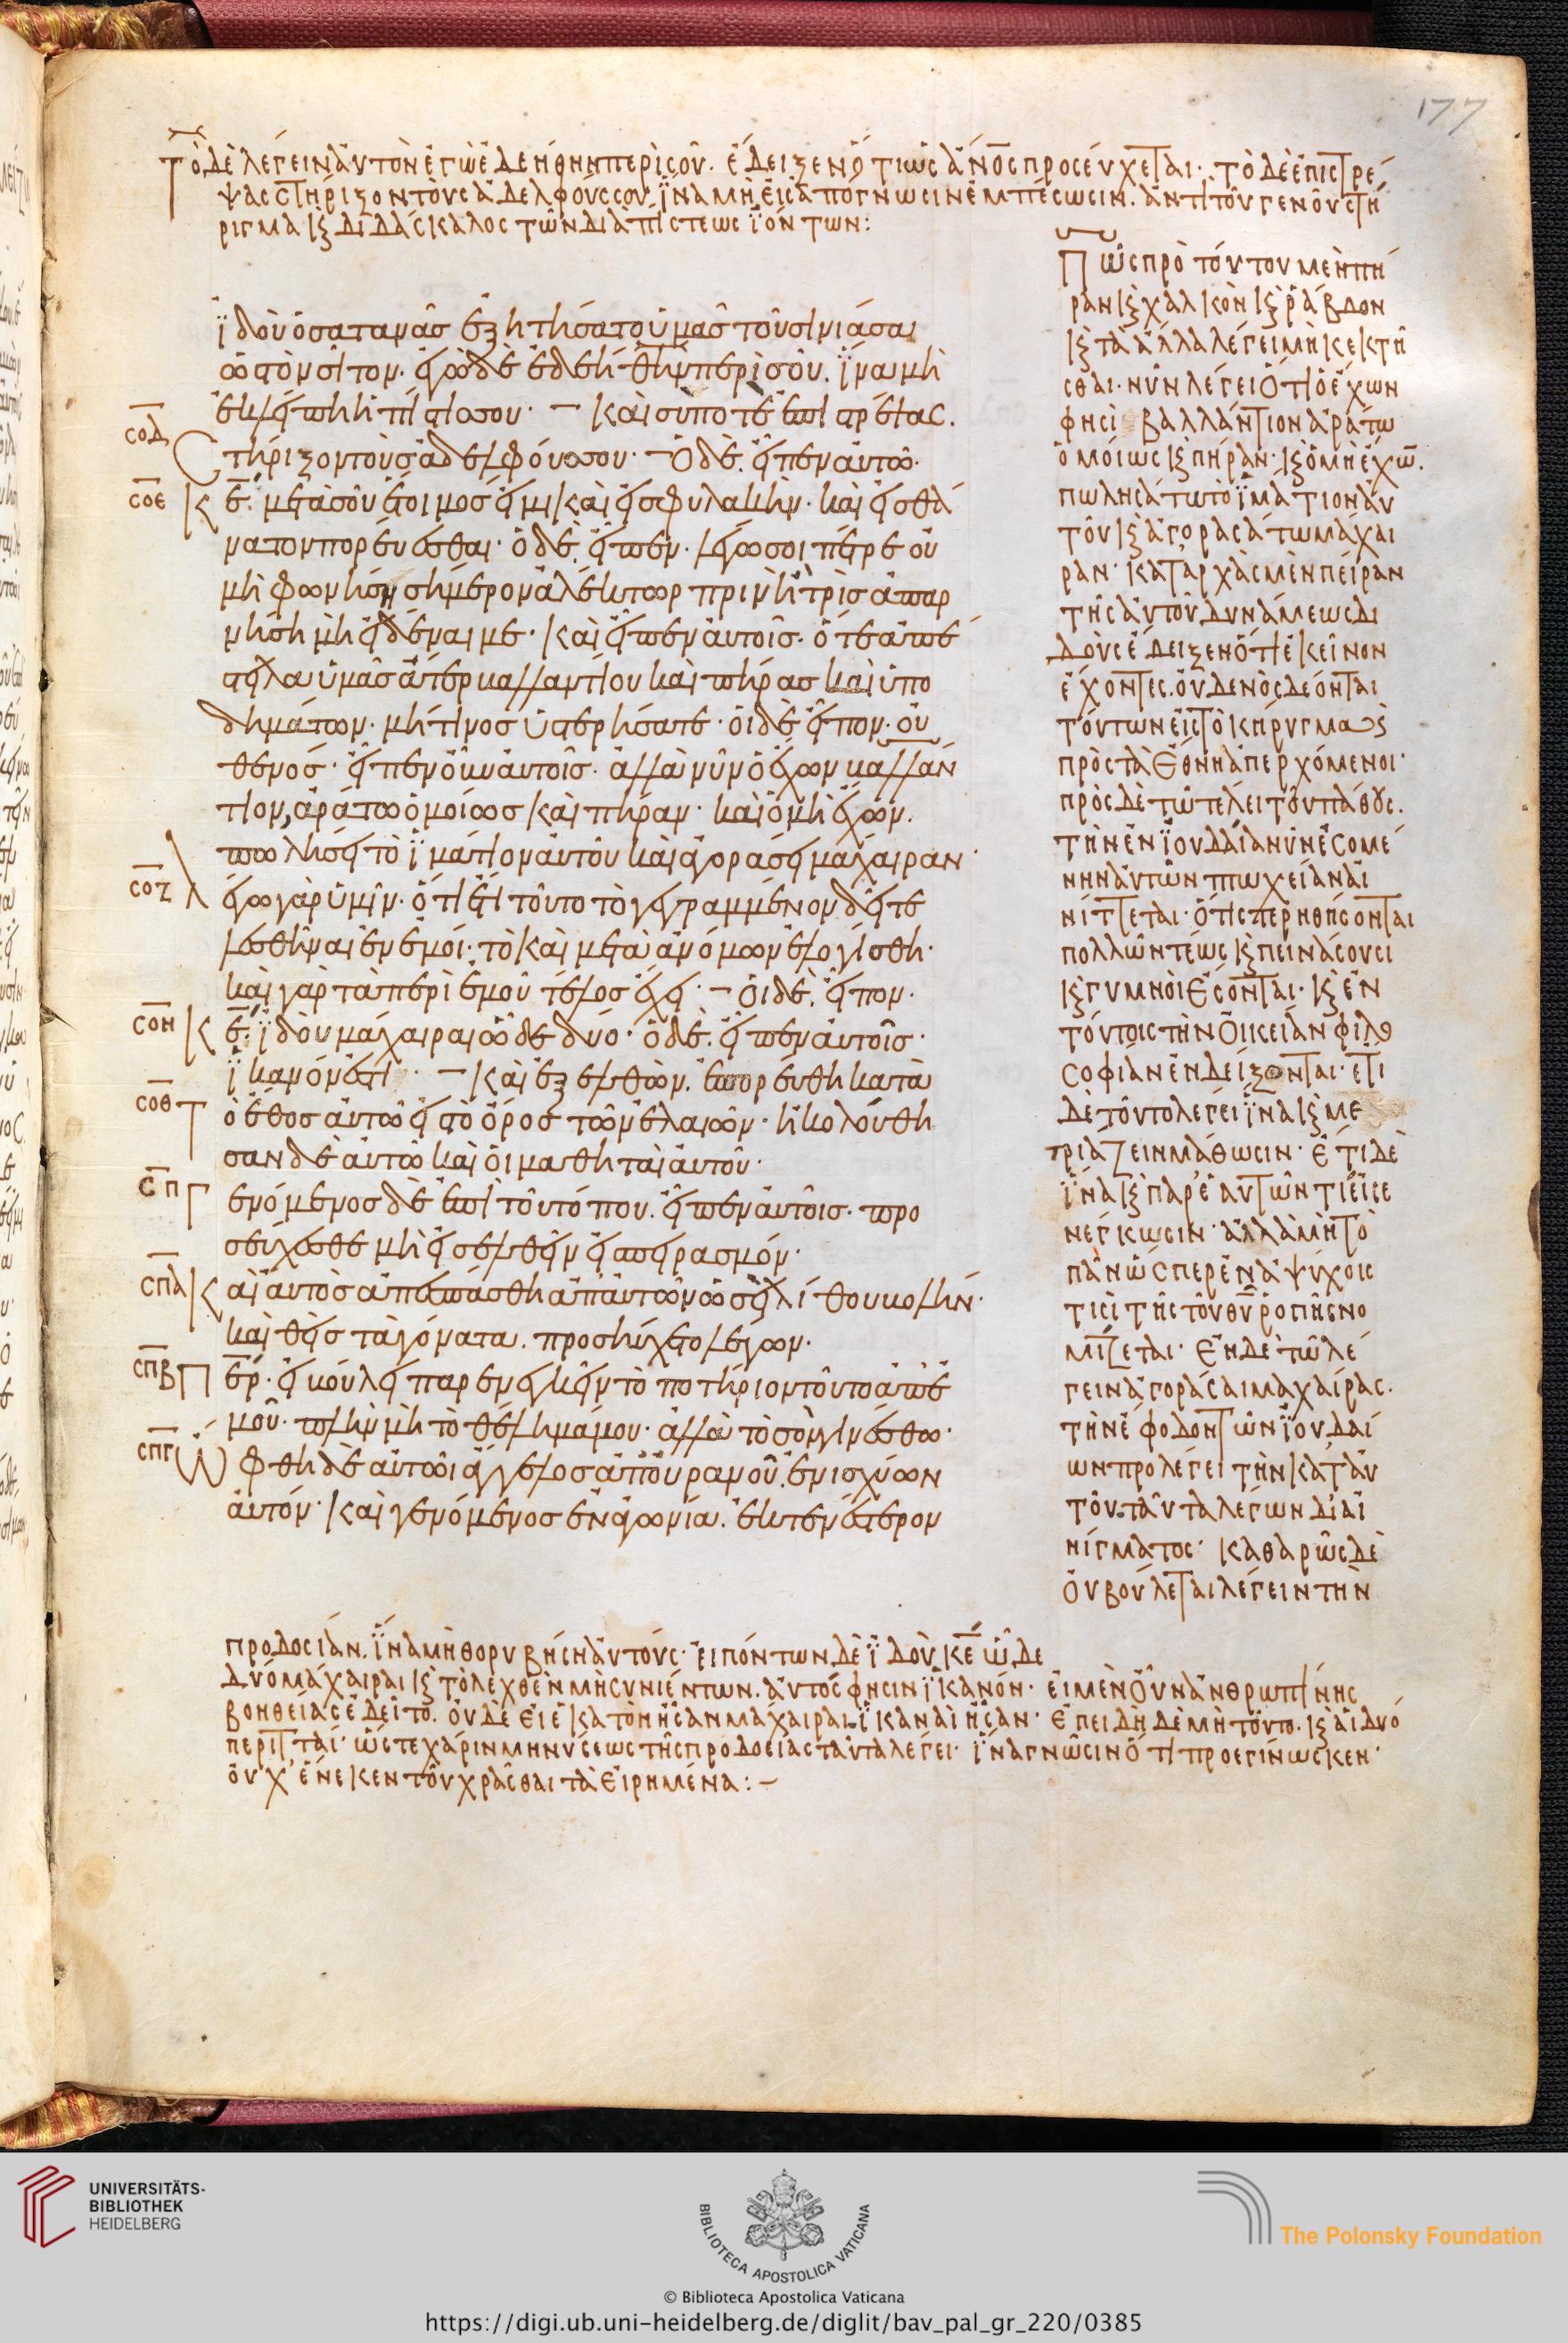 177
Τὸ δὲ λέγειν αὐτὸν ἐγὼ ἐδεήθην περὶ σοῦ· ἔδειξεν ὅτι ὡς ἄνος προσεύχεται· τὸ δὲ ἐπιστρέ
ψας στήριξον τοὺς ἀδελφούς σου, ἵνα μὴ εἰς ἀπόγνωσιν ἐμπέσωσιν. ἀντὶ τοῦ γενοῦ στή
ριγμα κ διδάσκαλος τῶν διὰ πίστεως ἰόντων:
ἰδοὺ ὁ σατανᾶσ ἐξητήσατο ὑμᾶσ τοῦ σινιάσαι
ὡσ τὸν σῖτον· ἐγὼ δὲ ἐδεήθην περὶ σοῦ. ἵνα μὴ
ἐκλείπη ἡ πίστισ σου· – καὶ σύ ποτε ἐπιστρέψας.
σοδ
Στήριξον τοὺσ ἀδελφούσ σου· – Ὁ δὲ. εἶπεν αὐτῶ·
σοε
Κε· μετὰ σοῦ ἕτοιμοσ εἰμι καὶ εἰσ φυλακὴν· καὶ εἰσ θά
νατον πορεύεσθαι· ὁ δὲ. εἶπεν· λέγω σοι πέτρε οὐ
μὴ φωνήση σήμερον ἀλέκτωρ πρινὴ τρὶσ ἀπαρ
νήση μὴ εἰδέναι με· καὶ εἶπεν αὐτοῖσ· ὅτε ἀπέ
στειλα ὑμᾶσ ἄτερ βαλλαντίου καὶ πήρασ καὶ ὑπο
δημάτων· μή τινοσ ὑστερήσατε· οἱ δὲ εἶπον· οὐ
θενόσ· εἶπεν οὖν αὐτοῖσ· ἀλλὰ νῦν ὁ ἔχων βαλλάν
τιον, ἀράτω ὁμοίωσ καὶ πήραν· καὶ ὁ μὴ ἔχων.
πωλήσει τὸ ἱμάτιον αὐτοῦ καὶ ἀγοράσει μάχαιραν·
σοζ
λέγω γὰρ ὑμῖν· ὅτι ἔτι τοῦτο τὸ γεγραμμένον δεῖ τε
λεσθῆναι ἐν ἐμοί· τὸ καὶ μετὰ ἀνόμων ἐλογίσθη·
καὶ γὰρ τὰ περὶ ἐμοῦ τέλοσ ἔχει· – Οἱ δὲ. εἶπον·
σοη
Κε· ἰδοὺ μάχαιραι ὧδε δύο· ὁ δὲ. εἶπεν αὐτοῖσ·
ἱκανόν ἐστι· – καὶ ἐξελθὼν. ἐπορεύθη κατὰ
σοθ
Τὸ ἔθοσ αὐτῶ εἰσ τὸ ὄροσ τῶν ἐλαιῶν· ἠκολούθη
σαν δὲ αὐτῶ καὶ οἱ μαθηταὶ αὐτοῦ·
σπ
Γενόμενοσ δὲ ἐπὶ τοῦ τόπου. εἶπεν αὐτοῖσ· προ
σεύχεσθε μὴ εἰσελθεῖν εἰσ πειρασμόν·
σπα
Καὶ αὐτὸσ ἀπεσπάσθη ἀπ' αὐτῶν ὡσεὶ λίθου βολήν·
καὶ θεὶσ τὰ γόνατα. προσηύχετο λέγων·
σπβ
Περ· εἰ βούλει παρενεγκεῖν τὸ ποτήριον τοῦτο ἀπ' ἐ
μοῦ· πλὴν μὴ τὸ θέλημά μου· ἀλλὰ τὸ σὸν γινέσθω·
σπγ
Ὤφθη δὲ αὐτῶι ἄγγελοσ ἀπ' οὐρανοῦ. ἐνισχύων
αὐτόν· καὶ γενόμενοσ ἐν ἀγωνία. ἐκτενέστερον
Πῶς πρὸ τούτου μὲν πή
ραν κ χαλκὸν κ ῥάβδον
κ τὰ ἄλλα λέγει μὴ κεκτῆ
σθαι· νῦν λέγει ὅτι ὁ ἔχων
φησὶ βαλλάντιον ἀράτω
ὁμοίως κ πήραν· κ ὁ μὴ ἔχω̅.
πωλησάτω τὸ ἱμάτιον αὐ
τοῦ κ ἀγορασάτω μάχαι
ραν· κατ' ἀρχὰς μὲν πεῖραν
τῆς αὐτοῦ δυνάμεως δι
δοὺς ἔδειξεν ὅτι ἐκεῖνον
ἔχοντες. οὐδενὸς δέονται
τούτων εἰς τὸ κήρυγμα ὡς
πρὸς τὰ ἔθνη ἀπερχόμενοι·
πρὸς δὲ τῶ τέλει τοῦ πάθους.
τὴν ἐν ἰουδαία νῦν ἐσομέ
νην αὐτῶν πτωχείαν αἰ
νίττεται· ὅτι στερηθήσονται
πολλῶν τέως κ πεινάσουσι
κ γυμνοὶ ἔσονται· κ ἐν
τούτοις τὴν οἰκείαν φιλο
σοφίαν ἐνδείξονται· ἔτι
δὲ τοῦτο λέγει ἵνα κ με
τριάζειν μάθωσιν· ἔτι δὲ
ἵνα κ παρ' ἑαυτῶν τι εἰσε
νέγκωσιν· ἀλλὰ μὴ τὸ
πᾶν ὥσπερ ἐν ἀψύχοις
τισὶ τῆς τοῦ θυ ῥοπῆς νο
μίζεται· ἔν δὲ τῶ λέ
γειν ἀγοράσαι μαχαίρας.
τὴν ἔφοδον τῶν ἰουδαί
ων προλέγει τὴν κατ' αὐ
τοῦ. ταῦτα λέγων δι' αἰ
νίγματος· καθαρῶς δὲ
οὐ βούλεται λέγειν τὴν
προδοσίαν. ἵνα μὴ θορυβήση αὐτούς· εἰπόντων δὲ ἰδοὺ κε ὧδε
δύο μάχαιραι κ τὸ λεχθὲν μὴ συνιέντων. αὐτός φησιν ἱκανόν· εἰ μὲν οὖν ἀνθρωπίνης
βοηθείας ἐδεῖτο. οὐδὲ εἰ ἑκατὸν ἦσαν μάχαιραι. ἱκαναὶ ἦσαν· ἐπειδὴ δὲ μὴ τοῦτο. κ αἱ δύο
περιτταί· ὥστε χάριν μηνύσεως τῆς προδοσίας ταῦτα λέγει· ἵνα γνῶσιν ὅτι προεγίνωσκεν·
οὐχ' ἕνεκεν τοῦ χρᾶσθαι τὰ εἰρημένα: –
UNIVERSITÄTS-
BIBLIOTHEK
HEIDELBERG
BIBLIOTECA APOSTOLICA VATICANA
The Polonsky Foundation
© Biblioteca Apostolica Vaticana
https://digi.ub.uni-heidelberg.de/diglit/bav_pal_gr_220/0385